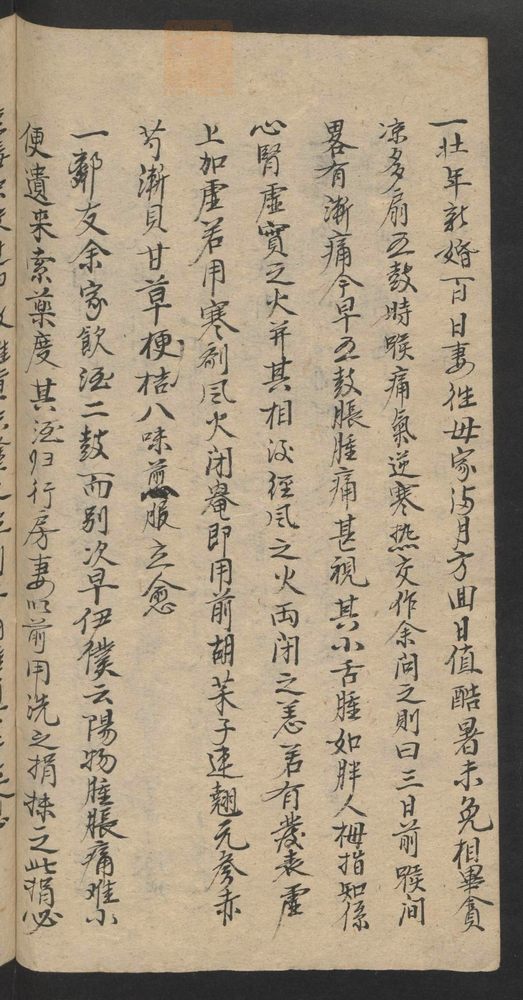 一壯年新婚百日妻往母家満月方囬日值酷暑未免相畢貪
凉多扇五鼓時喉痛氣逆寒热交作余问之則曰三日前喉间
畧有漸痛今早五鼓脹腫痛甚視其小舌腫如胖人拇指知係
心腎虛實之火并其相汝經风之火两闭之恙若有發表虛
上加虛若用寒剂风火闭奄即用前胡茱子連翹元參赤
芍漸貝甘草梗桔八味煎服立愈
一鄰友余家飲酒二鼓而别次早伊僕云陽物腫脹痛难小
便遺来索藥度其酒归行房妻以前用洗之揩揀之此揩必